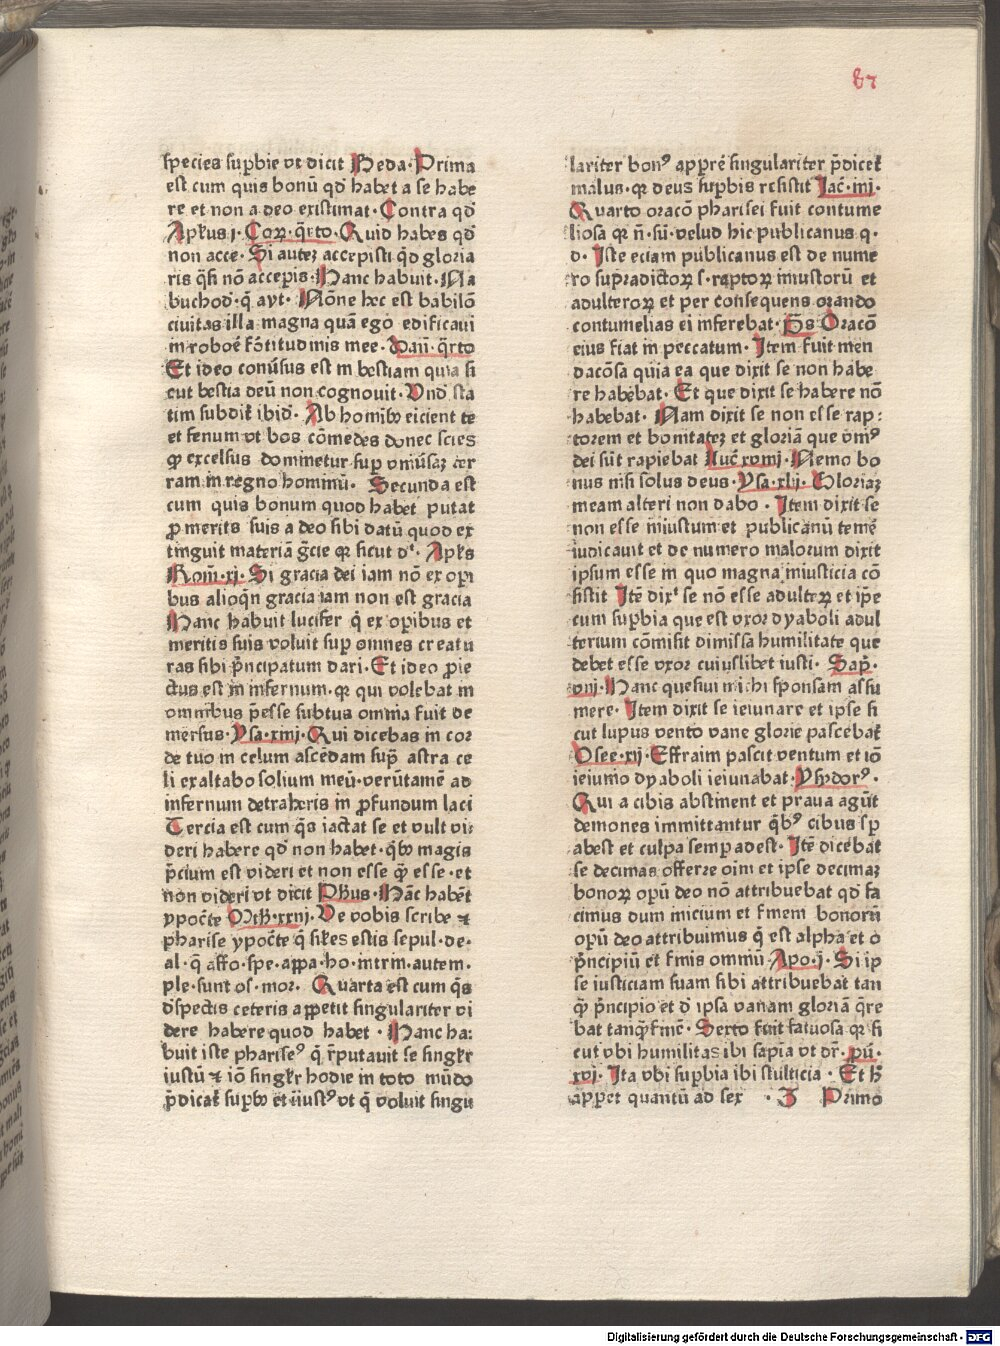 87
species sup̄bie vt dicit Beda· Prima
est cum quis bonū qd̄ habet a se habe
re et non a deo existimat· Contra qd̄
Apl̄us j· Coꝝ· q̄rto· Quid habes qd̄
non acce· Si autez accepisti q̄d gloria
ris q̄si nō acceperis· Hanc habuit· Na
buchod̄· q̄ ayt· Nōne hec est babilō
ciuitas illa magna quā ego edificaui
in roboe᷑ fōtitudinis mee· Dani̅· q̄rto
Et ideo conu̅sus est in bestiam quia si
cut bestia deū non cognouit· Vnd̄ sta
tim subdit̄ ibid̄· Ab homīb᷒ eicient te
et fenum vt bos cōmedes donec scies
ꝙ excelsus dominetur sup̄ vniūsaꝫ ter
ram in regno hominū· Secunda est
cum quis bonum quod habet putat
ꝓ meritis suis a deo sibi datū quod ex
tinguit materiā gr̄cie qꝛ sicut d᷑· Apl̄s
Rom̄·xj· Si gracia dei iam nō ex opi
bus alioqn̄ gracia iam non est gracia
Hanc habuit lucifer q̄ ex opibus et
meritis suis voluit sup̄ omnes creatu
ras sibi p̄ncipatum dari· Et ideo ꝓie
ctus est in infernum· qꝛ qui volebat in
omnibus p̄esse subtus omnia fuit de
mersus· Ysa·xiiij· Qui dicebas in cor
de tuo in celum ascēdam sup̄ astra ce
li exaltabo solium meū· verūtamē ad
infernum detraheris in ꝓfundum laci
Tercia est cum q̄s iactat se et vult vi:
deri habere qd̄ non habet· qb᷒ magis
p̄cium est videri et non esse ꝙ̄ esse· et
non videri vt dicit Ph̄us· Hāc habēt
ypoc̄te Mth̄·xxiij· Ve vobis scribe ⁊
pharise ypoc̄te q̄ sil̄es estis sepul·de·
al· q̄ affo·spe·appa·ho·intrin·autem·
ple·sunt os·mor· Quarta est cum q̄s
dispectis ceteris appetit singulariter vi
dere habere quod habet · Hanc ha:
buit iste pharise᷒ q̄ r̄putauit se singlr̄
iustū ⁊ iō singlr̄ hodie in toto mūdo
p̄dicat̄ sup̄b᷒ et iīust᷒ vt q̄ voluit singu
lariter bon᷒ apprē singulariter p̄dicet̄
malus· qꝛ deus sup̄bis resistit Iac̄·iiij·
Quarto oracō pharisei fuit contume
liosa qꝛ n̄· sū· velud hic publicanus q·
d· Iste eciam publicanus est de nume
ro supradictoꝝ s· raptoꝝ iniustorū et
adulteroꝝ et per consequens orando
contumelias ei inferebat· Ps̄ Oracō
eius fiat in peccatum· Item fuit men
dacōsa quia ea que dixit se non habe
re habebat· Et que dixit se habere nō
habebat· Nam dixit se non esse rap:
torem et bonitateꝫ et gloriā que om̄᷒
dei sūt rapiebat Luc̄ xviij· Nemo bo
nus nisi solus deus· Ysa·xlij· Gloriaꝫ
meam alteri non dabo · Item dixit se
non esse iniustum et publicanū temē
iudicauit et de numero malorum dixit
ipsum esse in quo magna iniusticia cō
sistit Itē dix᷑ se nō esse adulteꝝ et ip̄e
cum sup̄bia que est vxor dyaboli adul
terium cōmisit dimissa humilitate que
debet esse vxor cuiuslibet iusti· Sap̄·
viij· Hanc quesiui michi sponsam assu
mere· Item dixit se ieiunare et ipse si
cut lupus vento vane glorie pascebat̄
Osee·xij· Effraim pascit ventum et iō
ieiunio dyaboli ieiunabat· Ysydor᷒·
Qui a cibis abstinent et praua agūt
demones immittantur qb᷒ cibus sp̄
abest et culpa semp̄ adest· Itē dicebat
se decimas offerre oīm et ipse decimaꝫ
bonoꝝ opū deo nō attribuebat qd̄ fa
cimus dum inicium et finem bonorū
opū deo attribuimus q̄ est alpha et o
p̄ncipiū et finis omniū· Apo·j· Si ip
se iusticiam suam sibi attribuebat tan
ꝙ̄ p̄ncipio et d̄ ipsa vanam gloriā q̄re
bat tanꝙ̄ finē· Sexto fuit fatuosa qꝛ si
cut vbi humilitas ibi sapīa vt dr̄· pu̅·
xvj· Ita vbi sup̄bia ibi stulticia · Et h̄
apparet quantū ad sex · 3 Primo
Digitalisierung gefördert durch die Deutsche Forschungsgemeinschaft · DFG